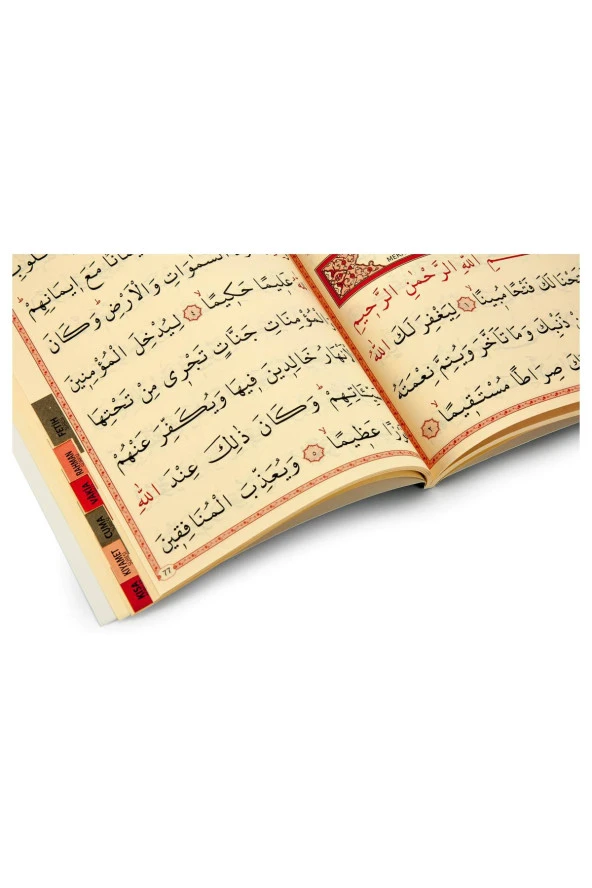 اللهِ الرَّحْمٰنِ الرَّحِيمِ
لَكَ فَتْحًا مُبِينًا ١ لِيَغْفِرَ لَكَ اللهُ
ذَنْبِكَ وَمَا تَاَخَّرَ وَيُتِمَّ نِعْمَتَهُ
صِرَاطًا مُسْتَقِيمًا ٢
مَعَ اِيمَانِهِمْ
السَّمٰوَاتِ وَالْاَرْضِ وَكَانَ
اللهُ عَلِيمًا حَكِيمًا ٤ لِيُدْخِلَ الْمُؤْمِنِينَ
الْمُؤْمِنَاتِ جَنَّاتٍ تَجْرِى مِنْ تَحْتِهَا
خَالِدِينَ فِيهَا وَيُكَفِّرَ عَنْهُمْ
وَكَانَ ذٰلِكَ عِنْدَ اللهِ
عَظِيمًا ٥ وَيُعَذِّبَ الْمُنَافِقِينَ
77
FETİH
RAHMAN
VAKIA
CUMA
KIYAMET
KISA